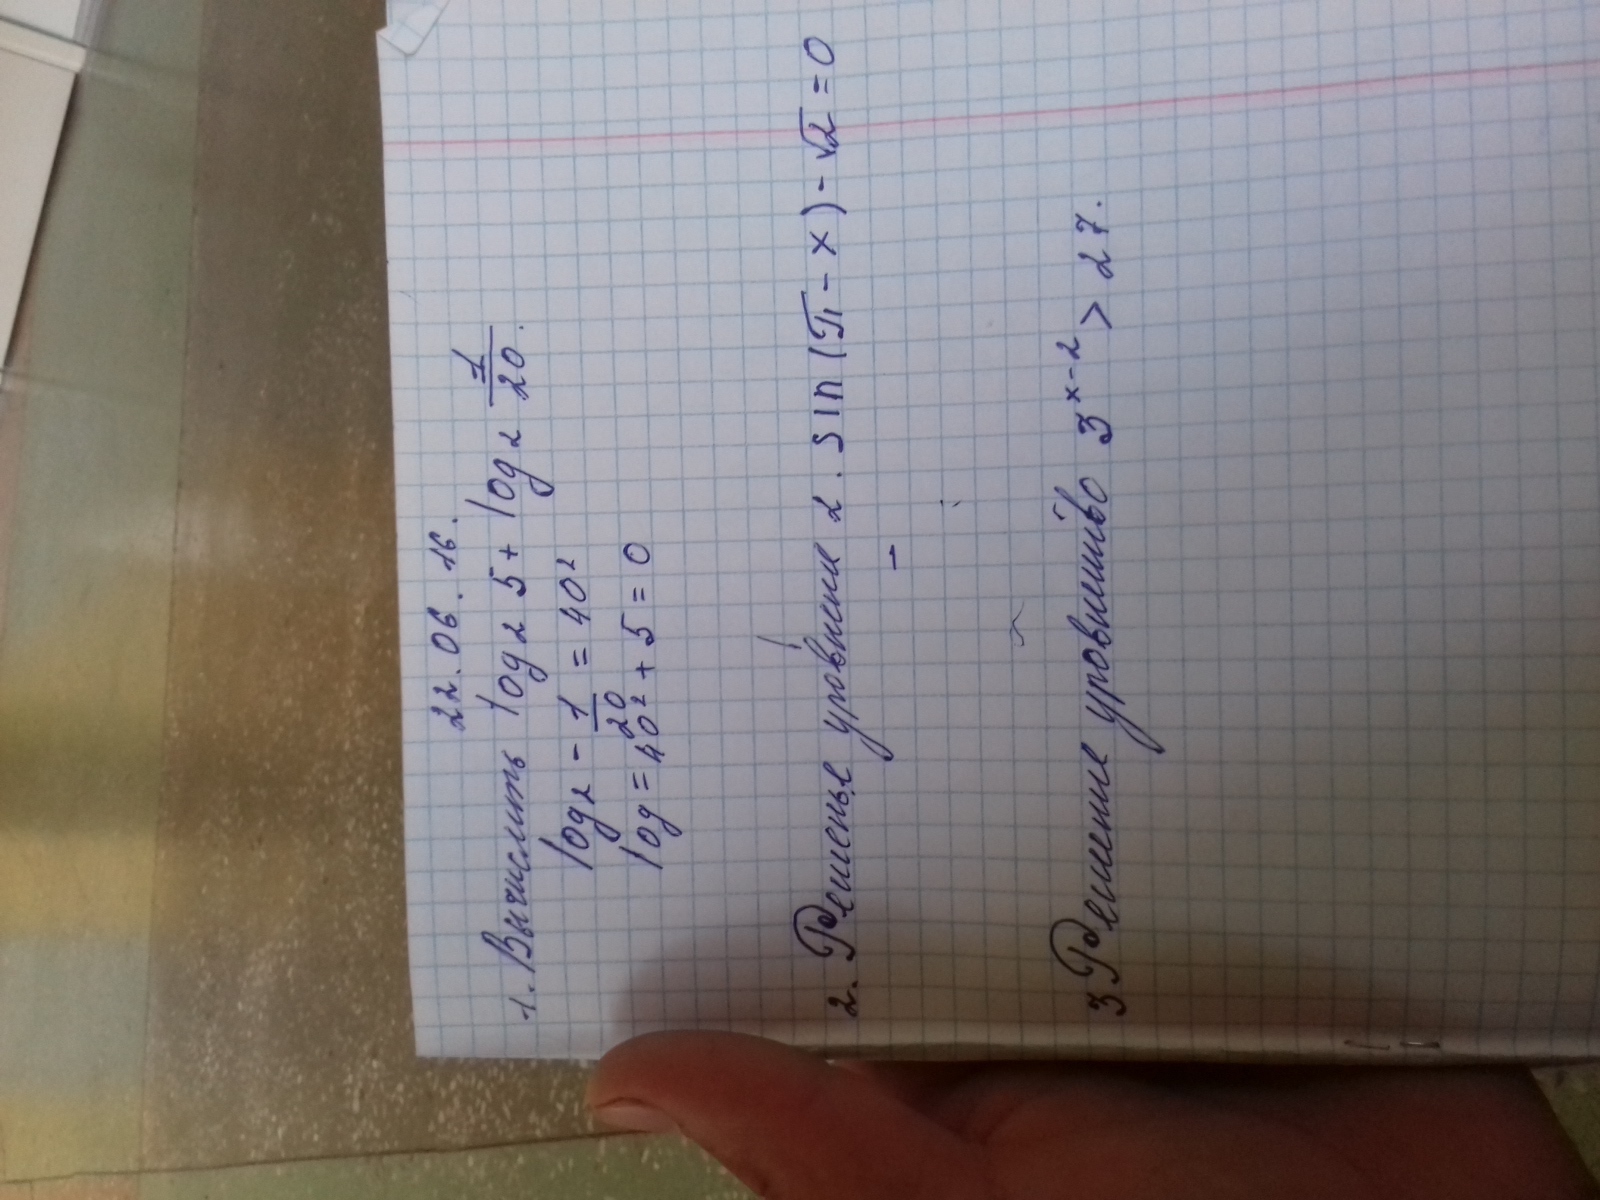 22.06.16.
1. Вычислить log₂ 5 + log₂ 1/20.
log₂ - 1/20 = 40²
log = 40² + 5 = 0
2. Решенье уровнени 2 · sin (π - x) - √2 = 0
3 Решение уровнинство 3ˣ⁻² > 27.